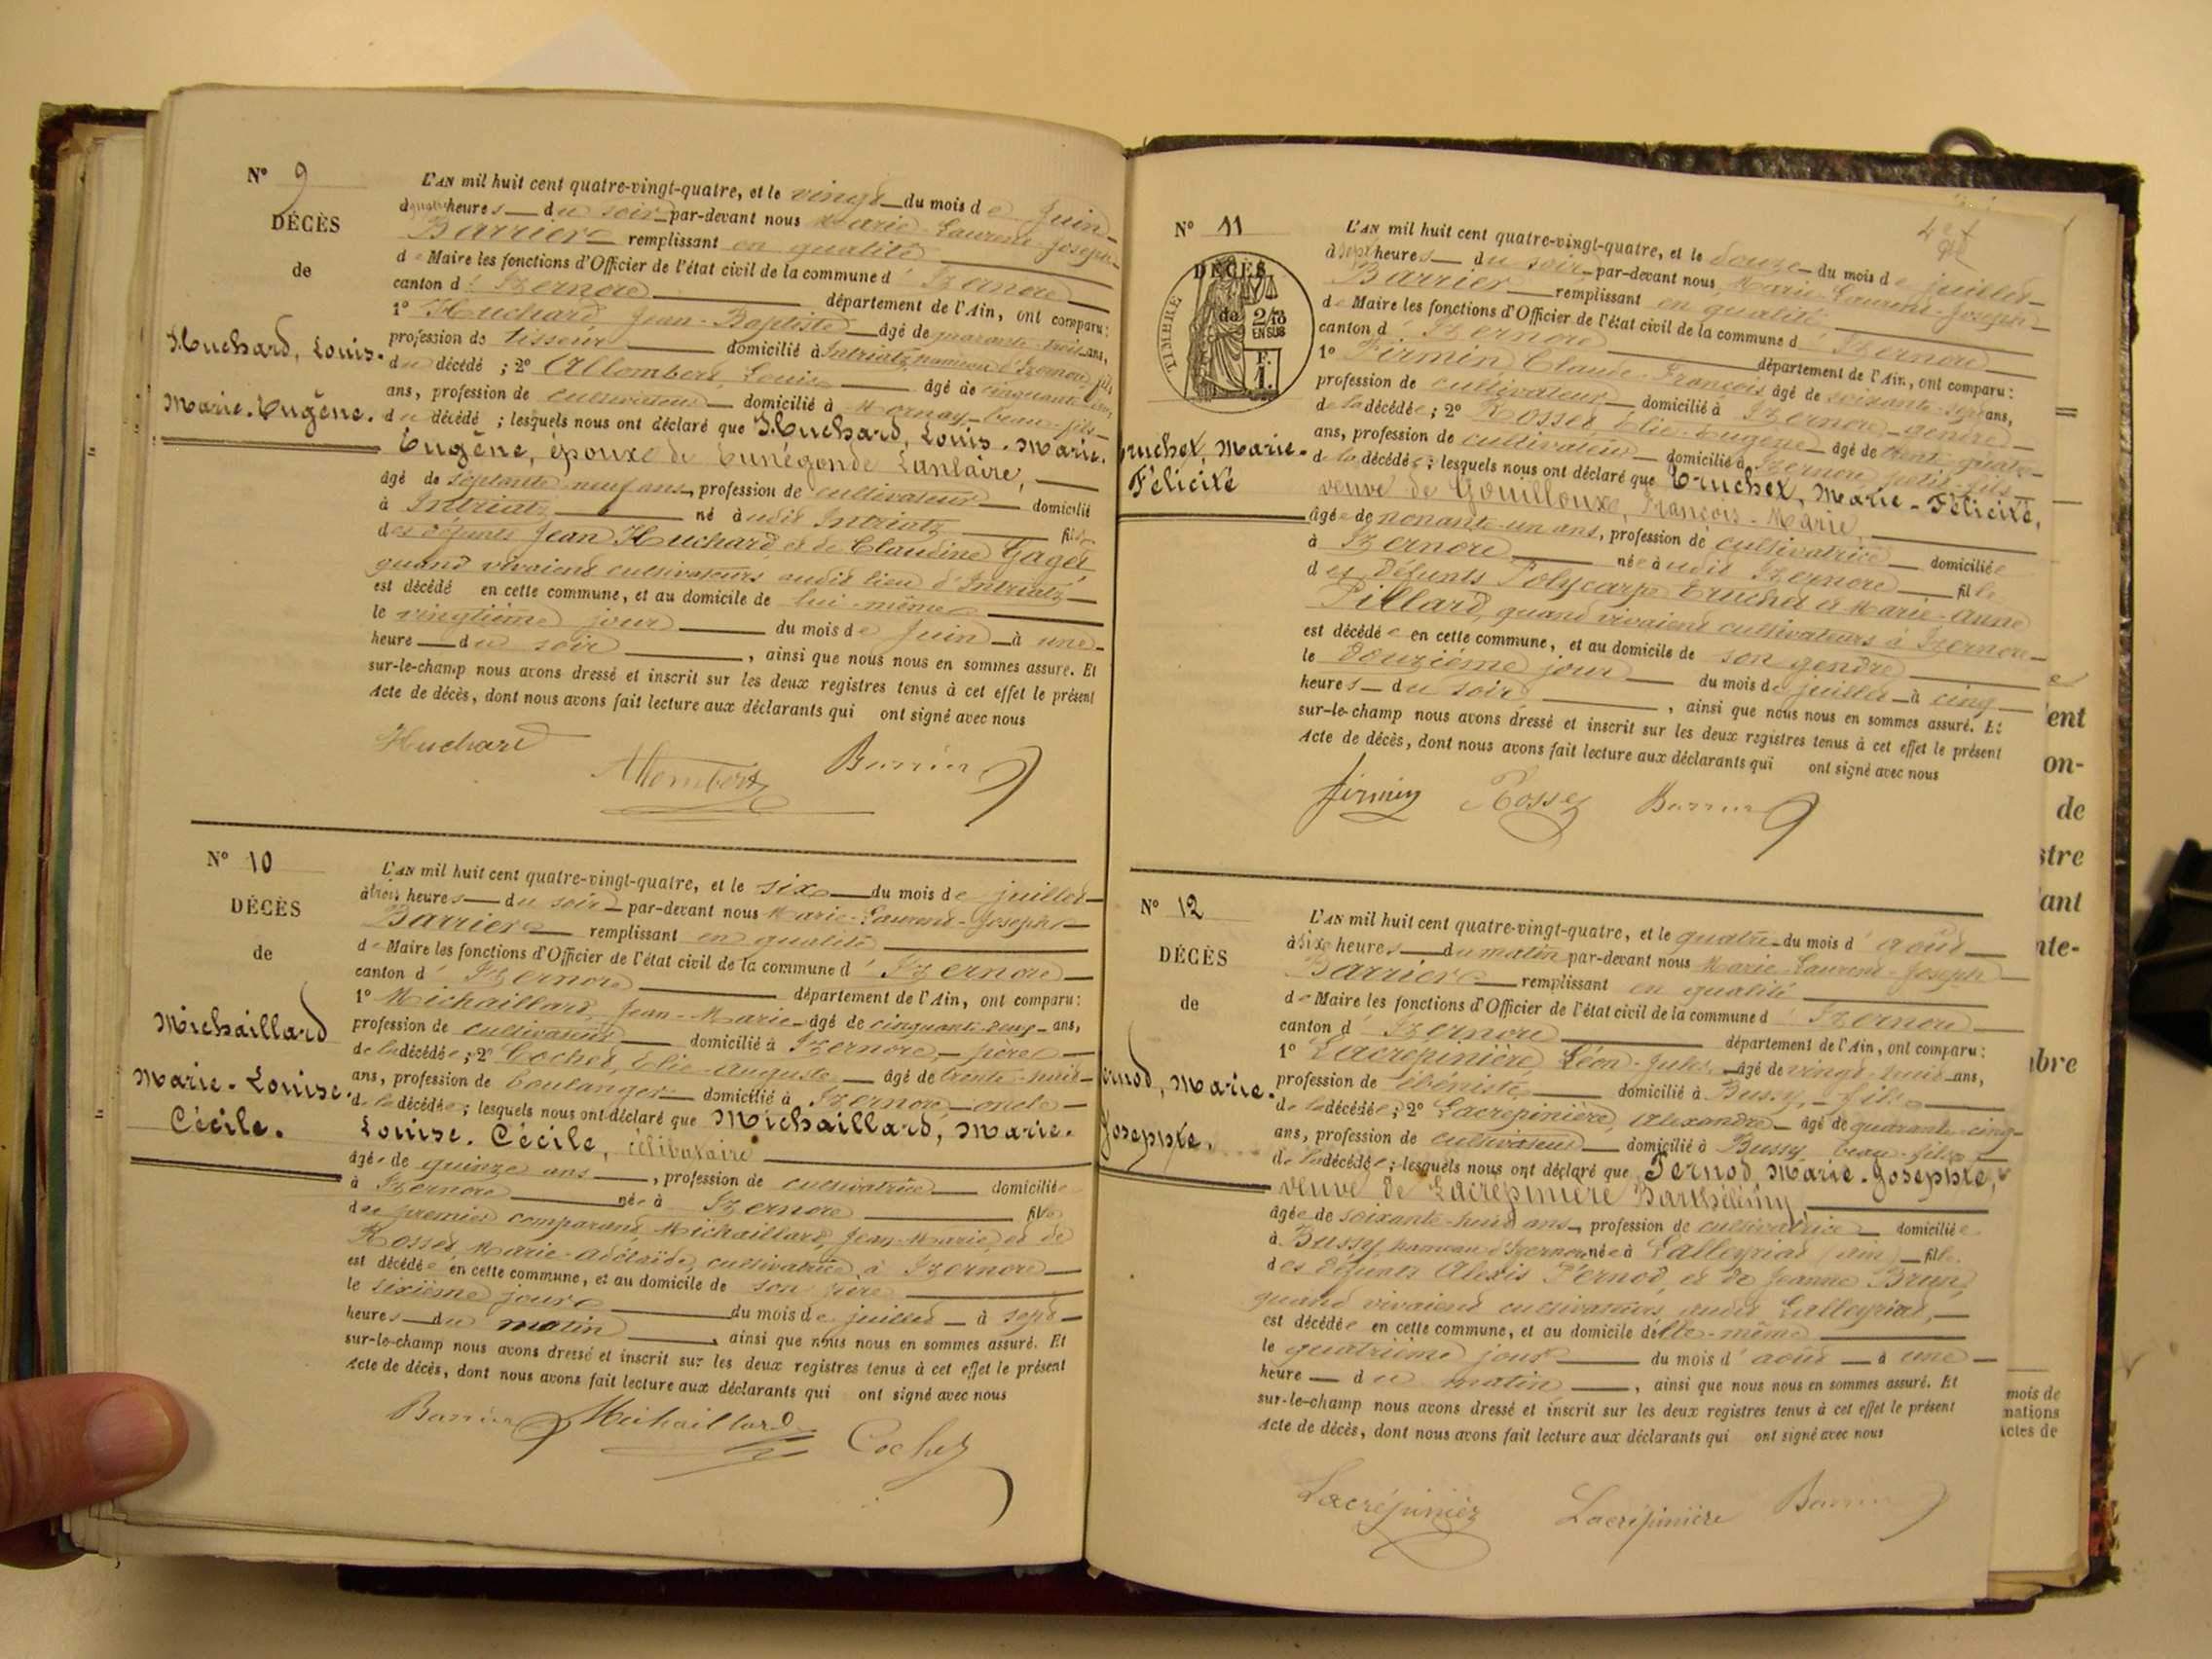 N° 9
DÉCÈS
de
Huchard, Louis-
Marie-Eugène.
L'AN mil huit cent quatre-vingt-quatre, et le vingt du mois de Juin
à quatre heures du soir par-devant nous Marie-Laurent-Joseph
Barrier remplissant en qualité
de Maire les fonctions d'Officier de l'état civil de la commune d'Izernore
canton d'Izernore département de l'Ain, ont comparu:
1° Huchard Jean-Baptiste âgé de quarante-trois ans,
profession de tisseur domicilié à Intriatz hameau d'Izernore, fils
du décédé; 2° Allombert, Louis âgé de cinquante
ans, profession de cultivateur domicilié à Mornay, beau-fils
du décédé; lesquels nous ont déclaré que Huchard, Louis-Marie-
Eugène, époux de Cunégonde Lanlaire,
âgé de septante-neuf ans, profession de cultivateur domicilié
à Intriatz né audit Intriatz fils
des défunts Jean Huchard et de Claudine Gaget
quand vivaient cultivateurs audit lieu d'Intriatz
est décédé en cette commune, et au domicile de lui-même
le vingtième jour du mois de Juin à une
heure du soir, ainsi que nous nous en sommes assuré. Et
sur-le-champ nous avons dressé et inscrit sur les deux registres tenus à cet effet le présent
Acte de décès, dont nous avons fait lecture aux déclarants qui ont signé avec nous
Huchard
Allombert
Barrier
N° 10
DÉCÈS
de
Michaillard
Marie-Louise-
Cécile.
L'AN mil huit cent quatre-vingt-quatre, et le six du mois de juillet
à trois heures du soir par-devant nous Marie-Laurent-Joseph
Barrier remplissant en qualité
de Maire les fonctions d'Officier de l'état civil de la commune d'Izernore
canton d'Izernore département de l'Ain, ont comparu:
1° Michaillard, Jean-Marie âgé de cinquante-deux ans,
profession de cultivateur domicilié à Izernore, père
de la décédée; 2° Cochet, Elie-Auguste âgé de trente-huit
ans, profession de boulanger domicilié à Izernore, oncle
de la décédée; lesquels nous ont déclaré que Michaillard, Marie-
Louise-Cécile, célibataire
âgée de quinze ans, profession de cultivatrice domiciliée
à Izernore née à Izernore fille
du premier comparant Michaillard, Jean-Marie, et de
Rosset Marie-Adélaïde, cultivatrice à Izernore
est décédée en cette commune, et au domicile de son père
le sixième jour du mois de juillet à sept
heures du matin, ainsi que nous nous en sommes assuré. Et
sur-le-champ nous avons dressé et inscrit sur les deux registres tenus à cet effet le présent
Acte de décès, dont nous avons fait lecture aux déclarants qui ont signé avec nous
Barrier Michaillard Cochet
N° 11
DÉCÈS
de
TIMBRE
2/10
EN SUS
F.
1.
Truchet, Marie-
Félicité
L'AN mil huit cent quatre-vingt-quatre, et le douze du mois de juillet
à sept heures du soir par-devant nous Marie-Laurent-Joseph
Barrier remplissant en qualité
de Maire les fonctions d'Officier de l'état civil de la commune d'Izernore
canton d'Izernore département de l'Ain, ont comparu:
1° Firmin, Claude-François âgé de soixante-sept ans,
profession de cultivateur domicilié à Izernore, gendre
de la décédée; 2° Rosset, Elie-Eugène âgé de trente-quatre
ans, profession de cultivateur domicilié à Izernore, petit-fils
de la décédée; lesquels nous ont déclaré que Truchet, Marie-Félicité,
veuve de Gouilloux, François-Marie
âgée de nonante-un ans, profession de cultivatrice domiciliée
à Izernore née audit Izernore fille
des défunts Polycarpe Truchet et Marie-Anne
Pillard, quand vivaient cultivateurs à Izernore
est décédée en cette commune, et au domicile de son gendre
le douzième jour du mois de juillet à cinq
heures du soir, ainsi que nous nous en sommes assuré. Et
sur-le-champ nous avons dressé et inscrit sur les deux registres tenus à cet effet le présent
Acte de décès, dont nous avons fait lecture aux déclarants qui ont signé avec nous
firmin Rosset Barrier
N° 12
DÉCÈS
de
ernod, Marie-
Josephte.
L'AN mil huit cent quatre-vingt-quatre, et le quatre du mois d'août
à six heures du matin par-devant nous Marie-Laurent-Joseph
Barrier remplissant en qualité
de Maire les fonctions d'Officier de l'état civil de la commune d'Izernore
canton d'Izernore département de l'Ain, ont comparu:
1° Lacrépinière, Léon-Jules âgé de vingt-huit ans,
profession de ébéniste domicilié à Bussy, fils
de la décédée; 2° Lacrépinière, Alexandre âgé de quarante-cinq
ans, profession de cultivateur domicilié à Bussy, beau-fils
de la décédée; lesquels nous ont déclaré que Pernod, Marie-Josephte,
veuve de Lacrépinière Barthélémy
âgée de soixante-huit ans, profession de cultivatrice domiciliée
à Bussy, hameau d'Izernore née à Lalleyriat (Ain) fille
des défunts Alexis Pernod, et de Jeanne Brun,
quand vivaient cultivateurs audit Lalleyriat,
est décédée en cette commune, et au domicile d'elle-même
le quatrième jour du mois d'août à une
heure du matin, ainsi que nous nous en sommes assuré. Et
sur-le-champ nous avons dressé et inscrit sur les deux registres tenus à cet effet le présent
Acte de décès, dont nous avons fait lecture aux déclarants qui ont signé avec nous
Lacrépinière Lacrépinière Barrier
ent
on-
de
stre
ant
nte-
bre
mois de
mations
Actes de